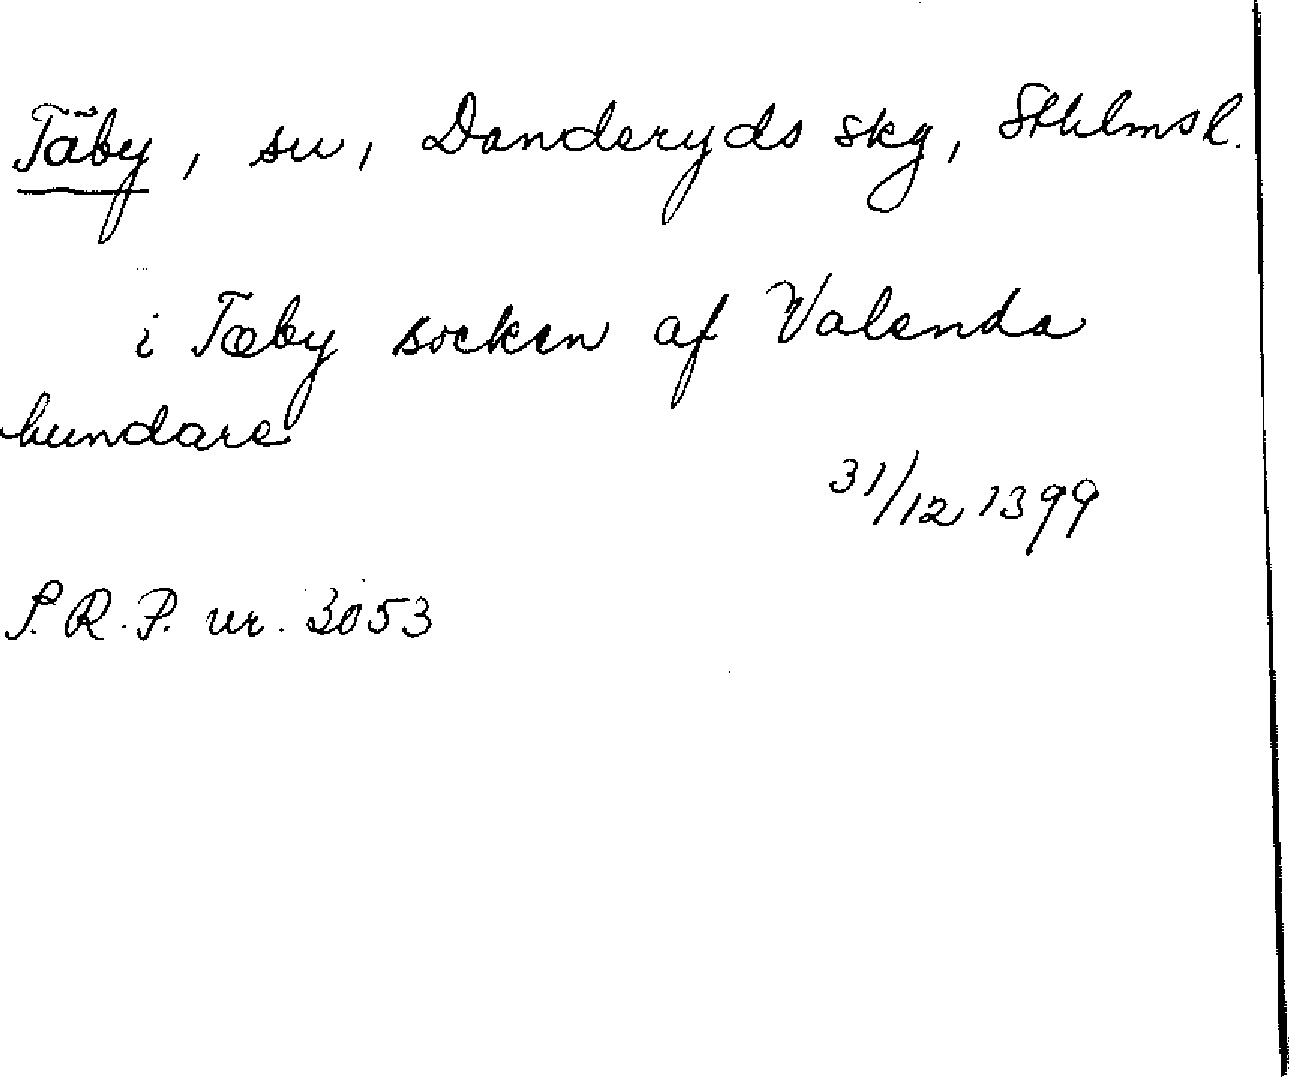 Täby, sn, Danderyds skg, Sthlms l.
i Tæby socken af Valenda
hundare
31/12 1399
S.R.P. nr. 3053